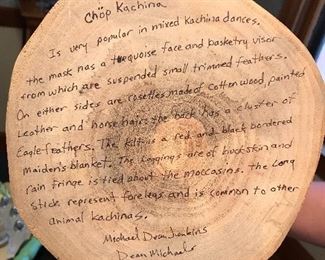 Chöp Kachina
Is very popular in mixed Kachina dances.
the mask has a turquoise face and basketry visor
from which are suspended small trimmed feathers.
On either sides are rosettes made of cottonwood painted
Leather and horse hairs the back has a cluster of
Eagle feathers. The kilt is a red and black bordered
maiden's blanket. The Leggings are of buckskin and
rain fringe is tied about the moccasins. the Long
stick represent forelegs and is common to other
animal kachinas.
Michael Dean Jenkins
Dean Michaels